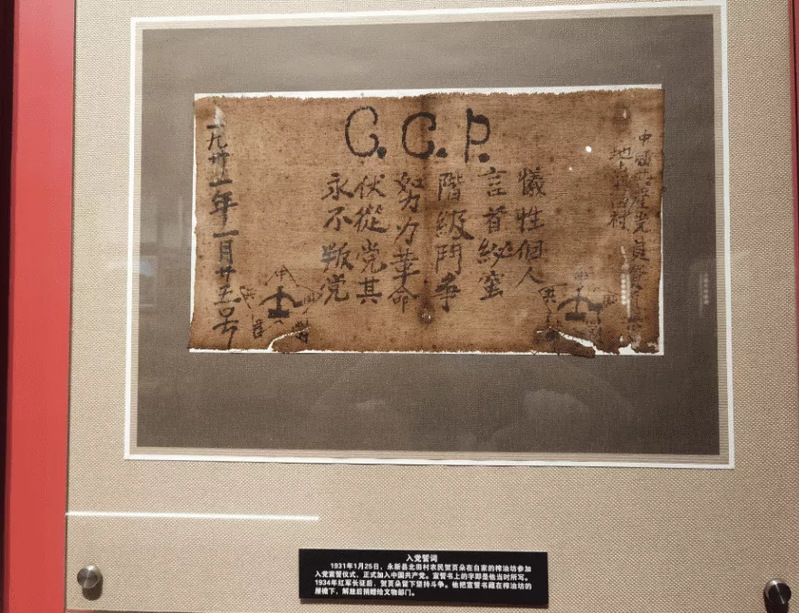 C.C.P.
中國共產党員
地点北田村
犧牲個人
言首紗蜜
階級鬥爭
努力革命
伏從党其
永不叛党
一九卅一年一月廿五号
入党誓词
1931年1月25日，永新县北田村农民贺页朵在自家的榨油坊参加
入党宣誓仪式，正式加入中国共产党。宣誓书上的字即是他当时所写。
1934年红军长征后，贺页朵留下坚持斗争。他把宣誓书藏在榨油坊的
屋檐下，解放后捐赠给文物部门。